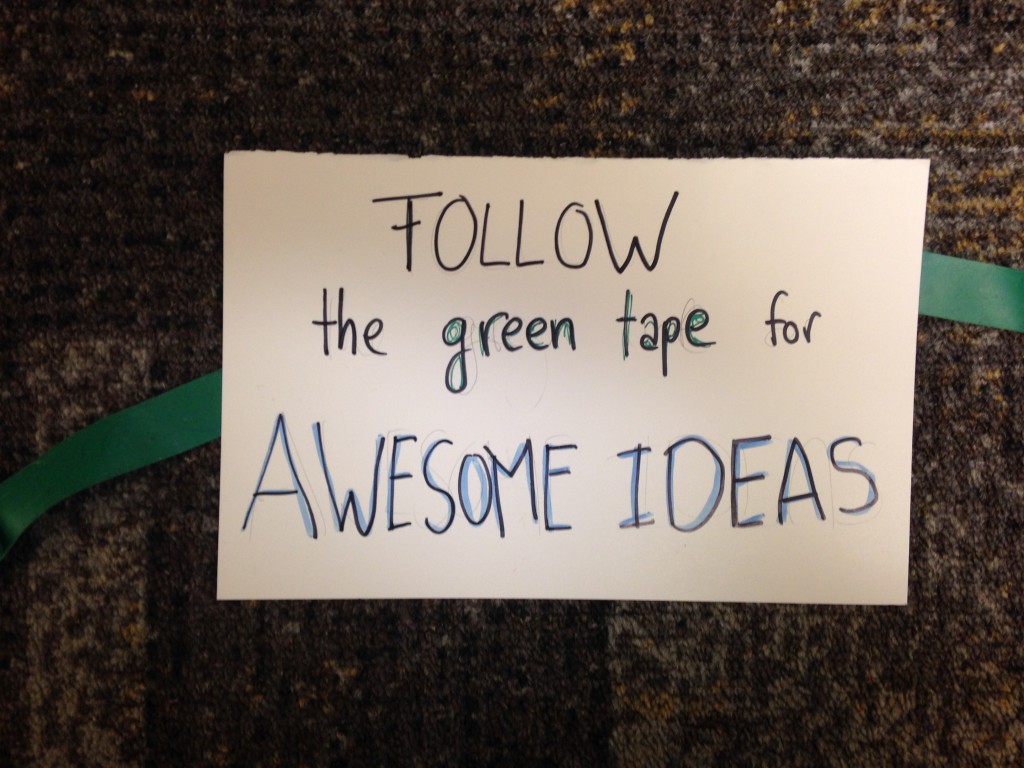 FOLLOW
the green tape for
AWESOME IDEAS